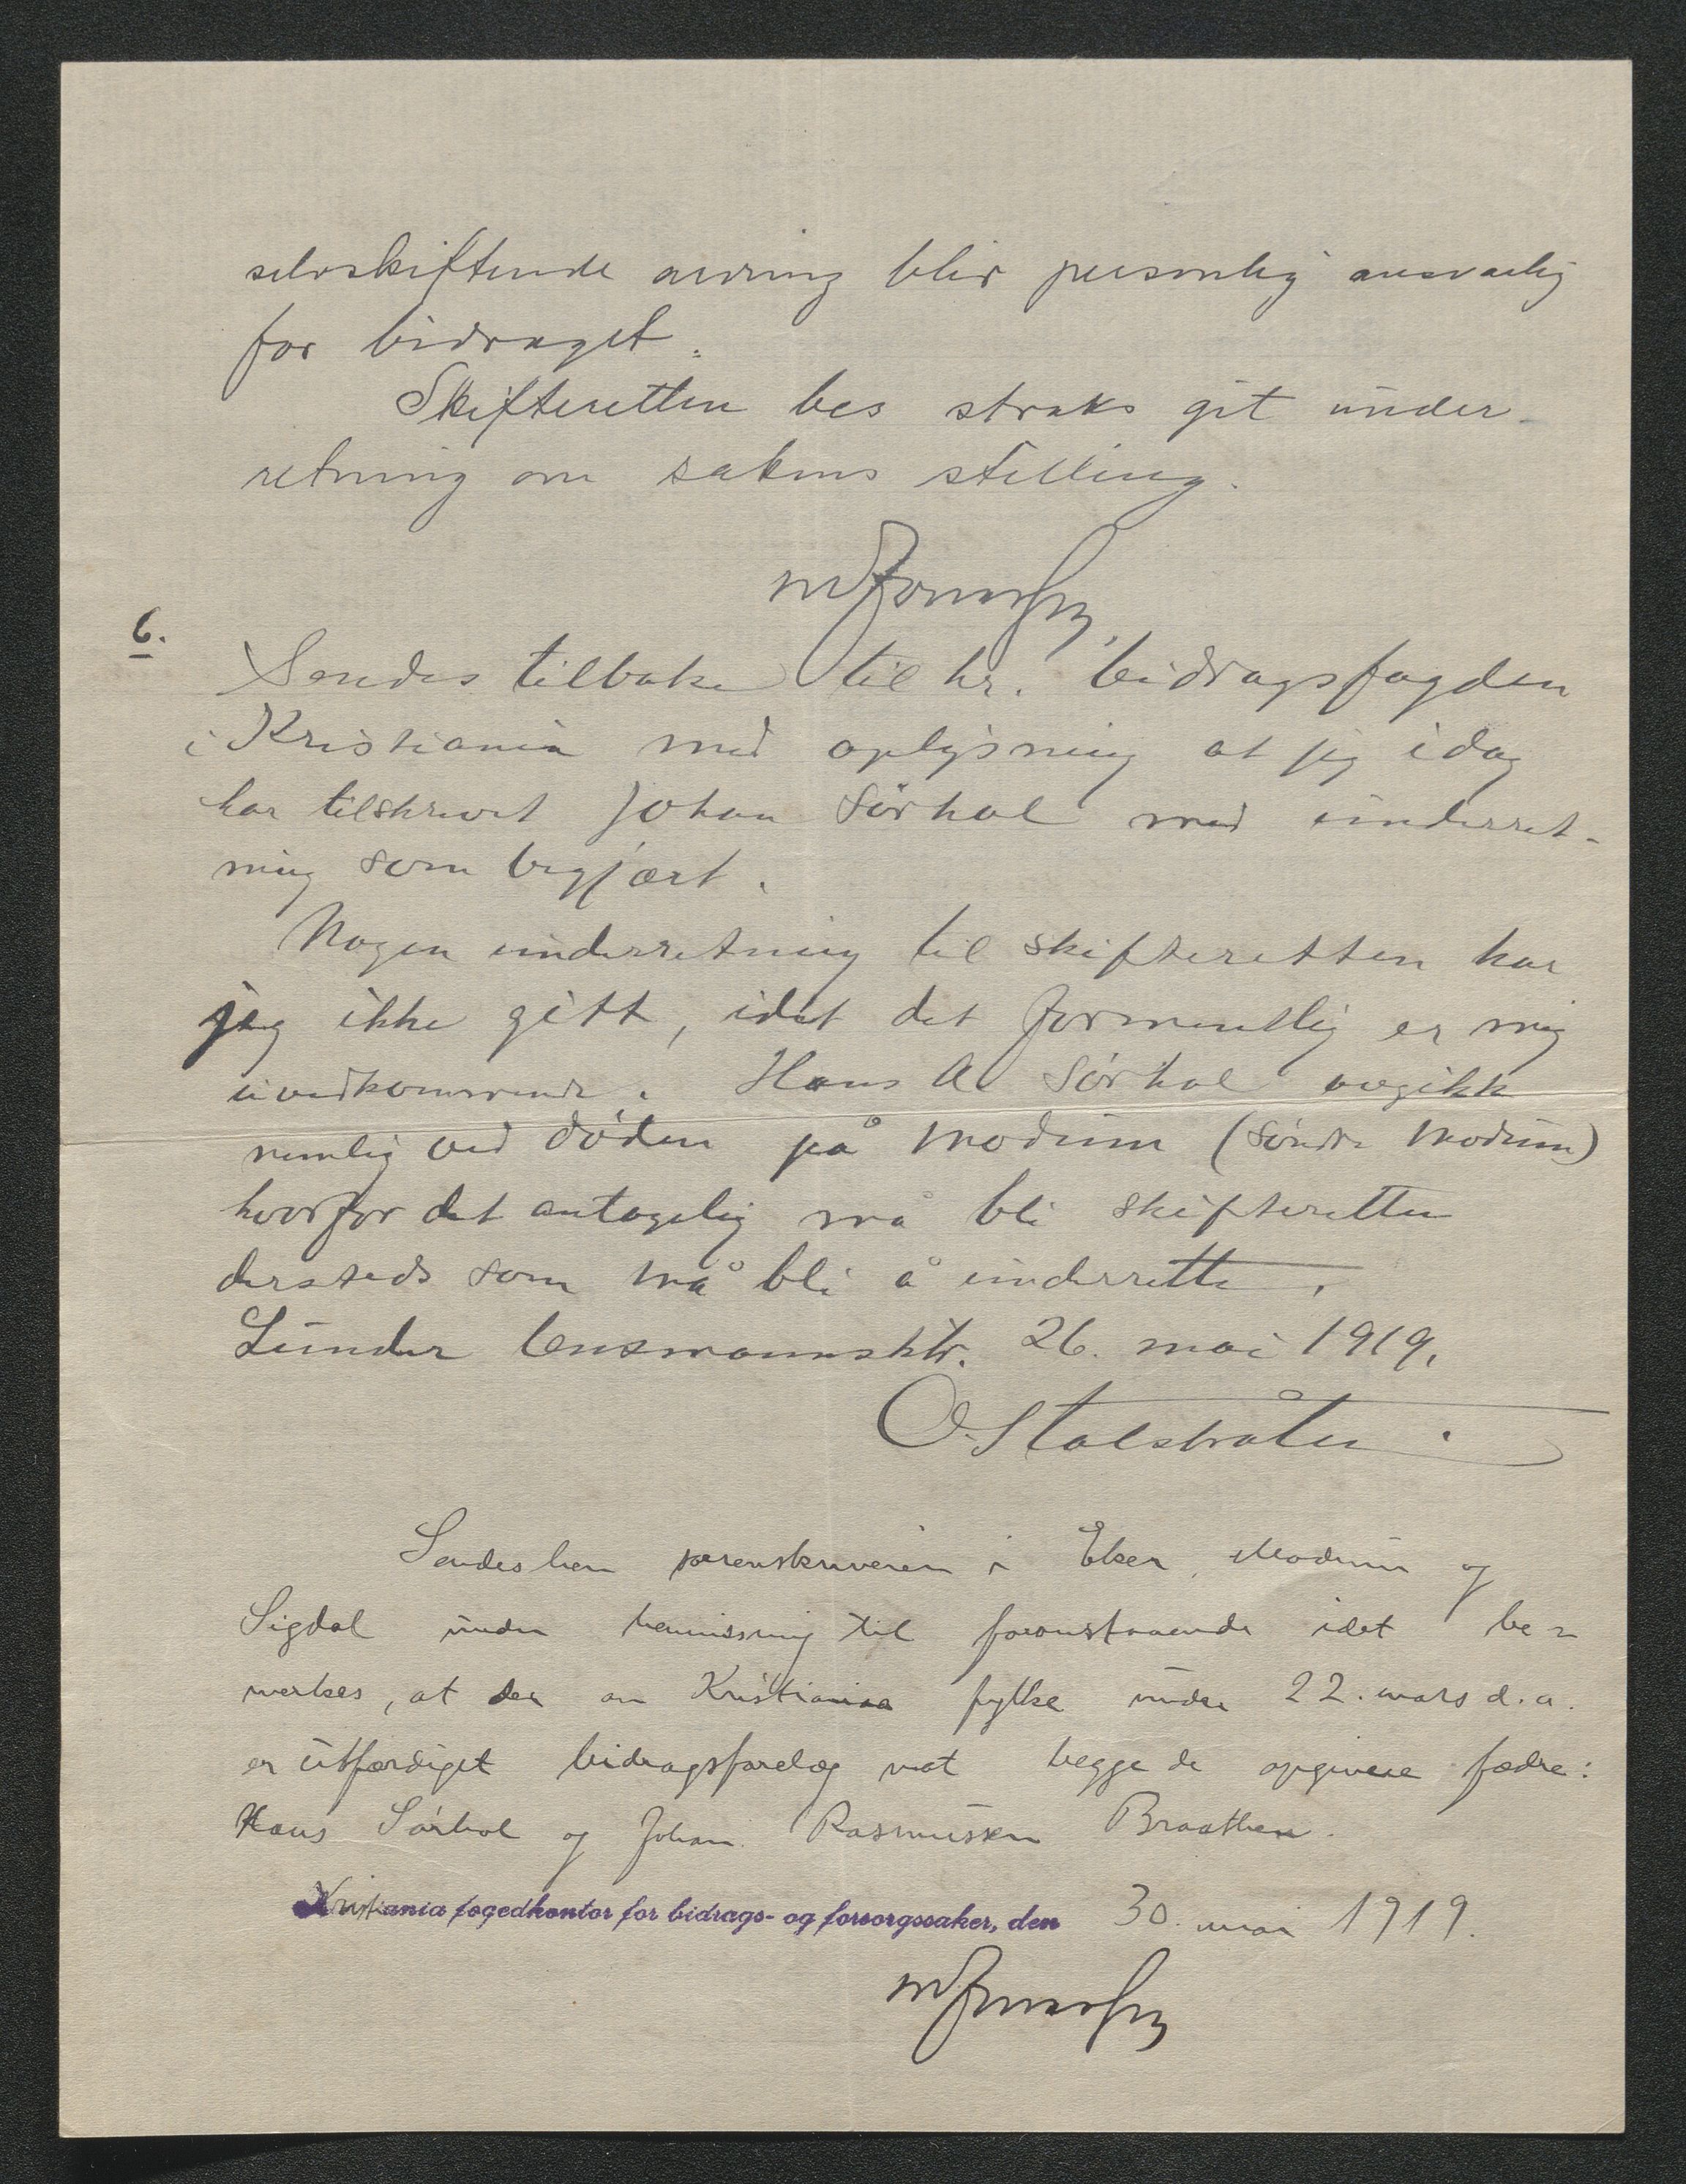 selvskiftende arving blir personlig ansvarlig
for bidraget.
Skifteretten bes straks git under-
retning om sakens stilling.
6.
Sendes tilbake til hr. bidragsfogden
i Kristiania med oplysning at jeg idag
har tilskrevet Johan Sørhol med underret-
ning som begjært.
Nogen underretning til skifteretten har
jeg ikke gitt, idet det formentlig er mig
uvedkommende. Hans A. Sørhol avgikk
nemlig ved døden på Modum (Søndre Modum)
hvorfor det antagelig må bli skifteretten
dersteds som må bli å underrette.
Lunder lensmannsktr. 26. mai 1919.
O. Stalsbråten
Sendes herr sorenskriveren i Eker, Modum og
Sigdal under henvisning til foranstaaende idet be-
merkes, at der av Kristiania fylke under 22. mars d.a.
er utfærdiget bidragsforelæg mot begge de opgivne fædre:
Hans Sørhol og Johan Rasmussen Braathen.
Kristiania fogedkontor for bidrags- og forsorgssaker, den 30. mai 1919.